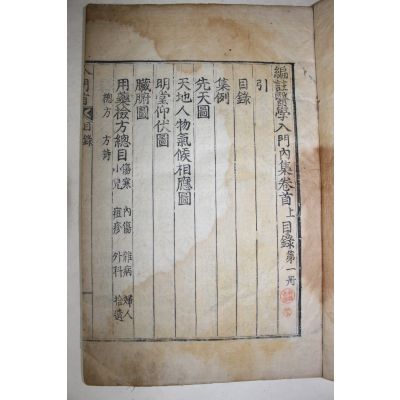 編註醫學入門內集卷首上目錄第一冊
引
目錄
集例
先天圖
天地人物氣候相應圖
明堂仰伏圖
臟腑圖
用藥檢方總目傷寒 內傷 雜病 婦人
小兒 痘疹 外科 拾遺
總方 方詩
入門首
目錄